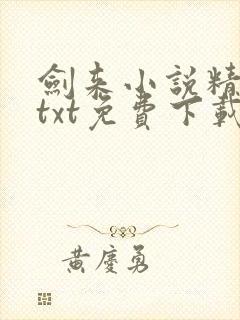 劍來小說精
txt免費下載
黃慶勇